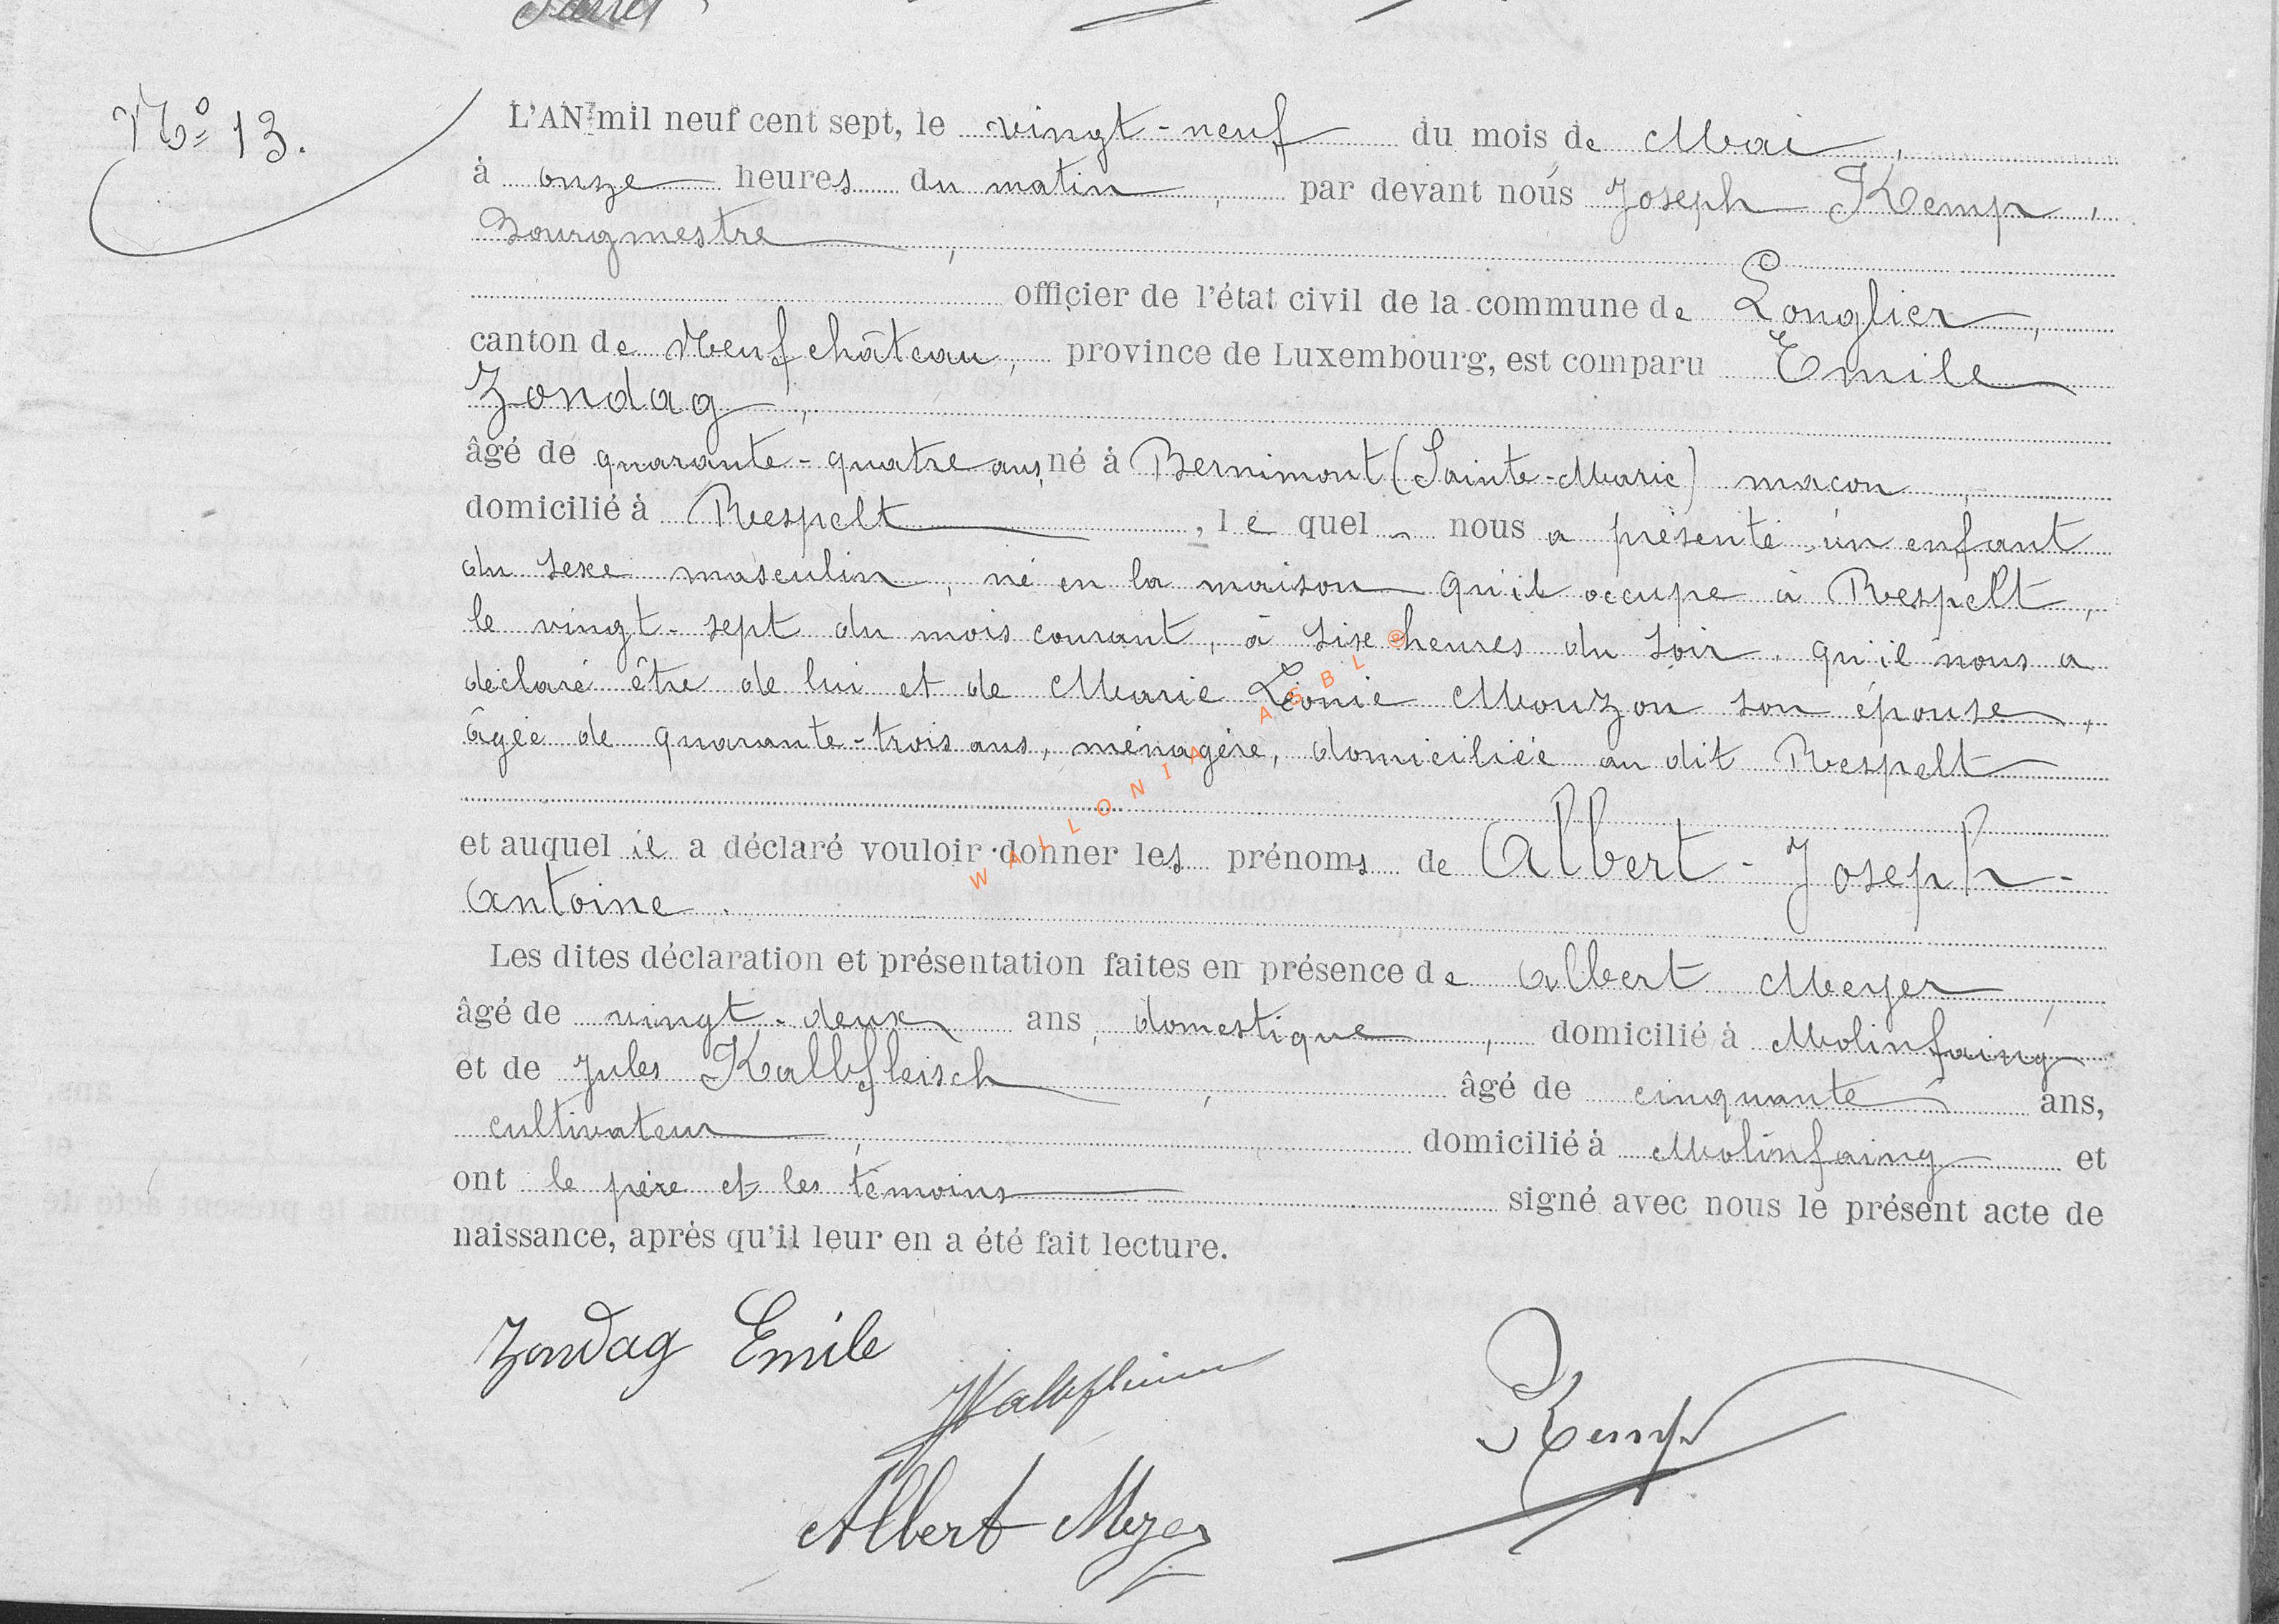 No 13.
L'AN mil neuf cent sept, le vingt-neuf du mois de Mai,
à onze heures du matin, par devant nous Joseph Kemp,
Bourgmestre,
officier de l'état civil de la commune de Longlier,
canton de Neufchâteau, province de Luxembourg, est comparu Emile
Zondag,
âgé de quarante-quatre ans, né à Bernimont (Sainte-Marie) macon,
domicilié à Respelt, le quel nous a présenté un enfant
du sexe masculin, né en la maison qu'il occupe à Respelt,
le vingt-sept du mois courant, à six heures du soir, qu'il nous a
déclaré être de lui et de Marie Léonie Mouzon son épouse,
âgée de quarante-trois ans, ménagère, domiciliée au dit Respelt
et auquel il a déclaré vouloir donner les prénoms de Albert-Joseph-
Antoine.
Les dites déclaration et présentation faites en présence de Albert Meyer,
âgé de vingt-deux ans, domestique, domicilié à Molinfaing
et de Jules Kalbfleisch, âgé de cinquante ans,
cultivateur, domicilié à Molinfaing et
ont le père et les témoins signé avec nous le présent acte de
naissance, après qu'il leur en a été fait lecture.
Zondag Emile
Kemp
Albert Meyer
WALLONIA ASBL ©